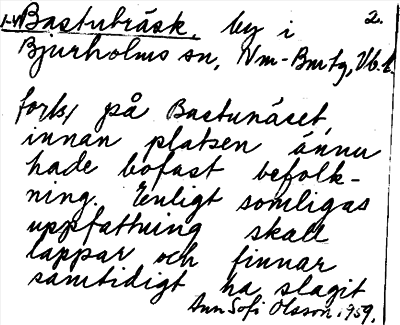 Bastuträsk, by i 2.
Bjurholms sn, Nm-Bmtg, Vb.l.
forts, på Bastunäset,
innan platsen ännu
hade bofast befolk-
ning. Enligt somligas
uppfattning skall
lappar och finnar
samtidigt ha slagit
Ann Sofi Olsson, 1959.